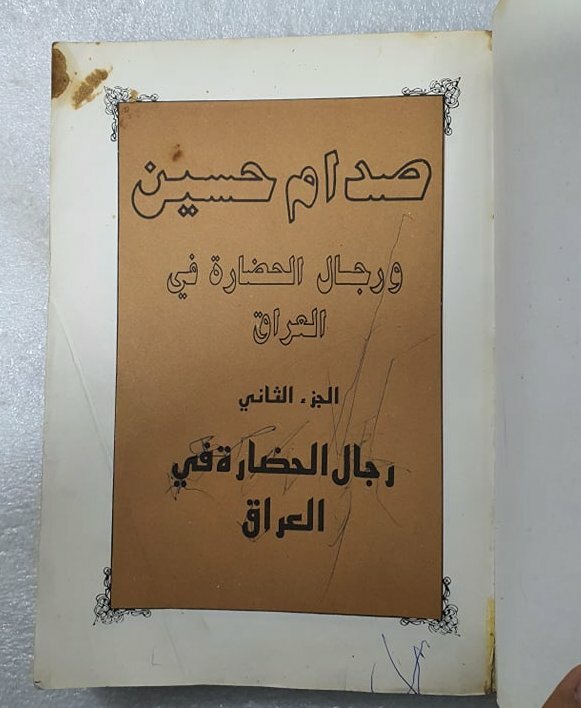 صدام حسين
ورجال الحضارة في
العراق
الجزء الثاني
رجال الحضارة في
العراق